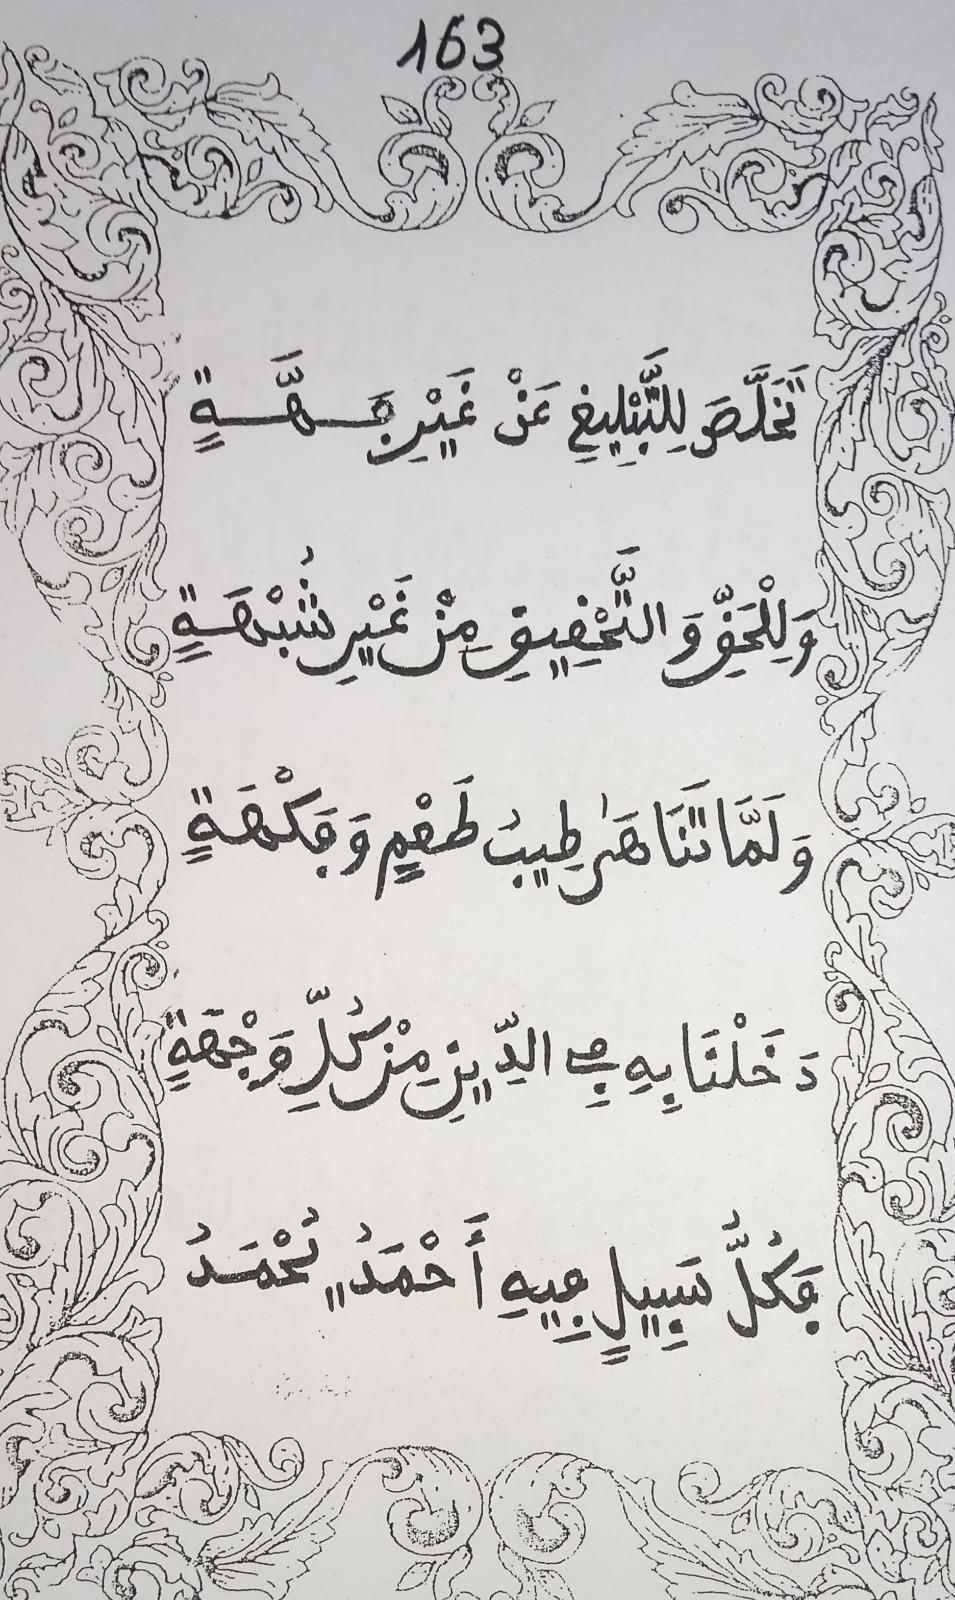 163
تَخَلَّصَ لِلتَّبْلِيغِ عَنْ غَيْرِ جَهَّةٍ
وَلِلْحَقِّ وَالتَّحْقِيقِ مِنْ غَيْرِ شُبْهَةٍ
وَلَمَّا تَنَاهَى طِيبُ طَعْمٍ وَفَكْهَةٍ
دَخَلْنَا بِهِ فِي الدِّينِ مِنْ كُلِّ وَجْهَةٍ
فَكُلُّ سَبِيلٍ فِيهِ أَحْمَدُ تُحْمَدُ